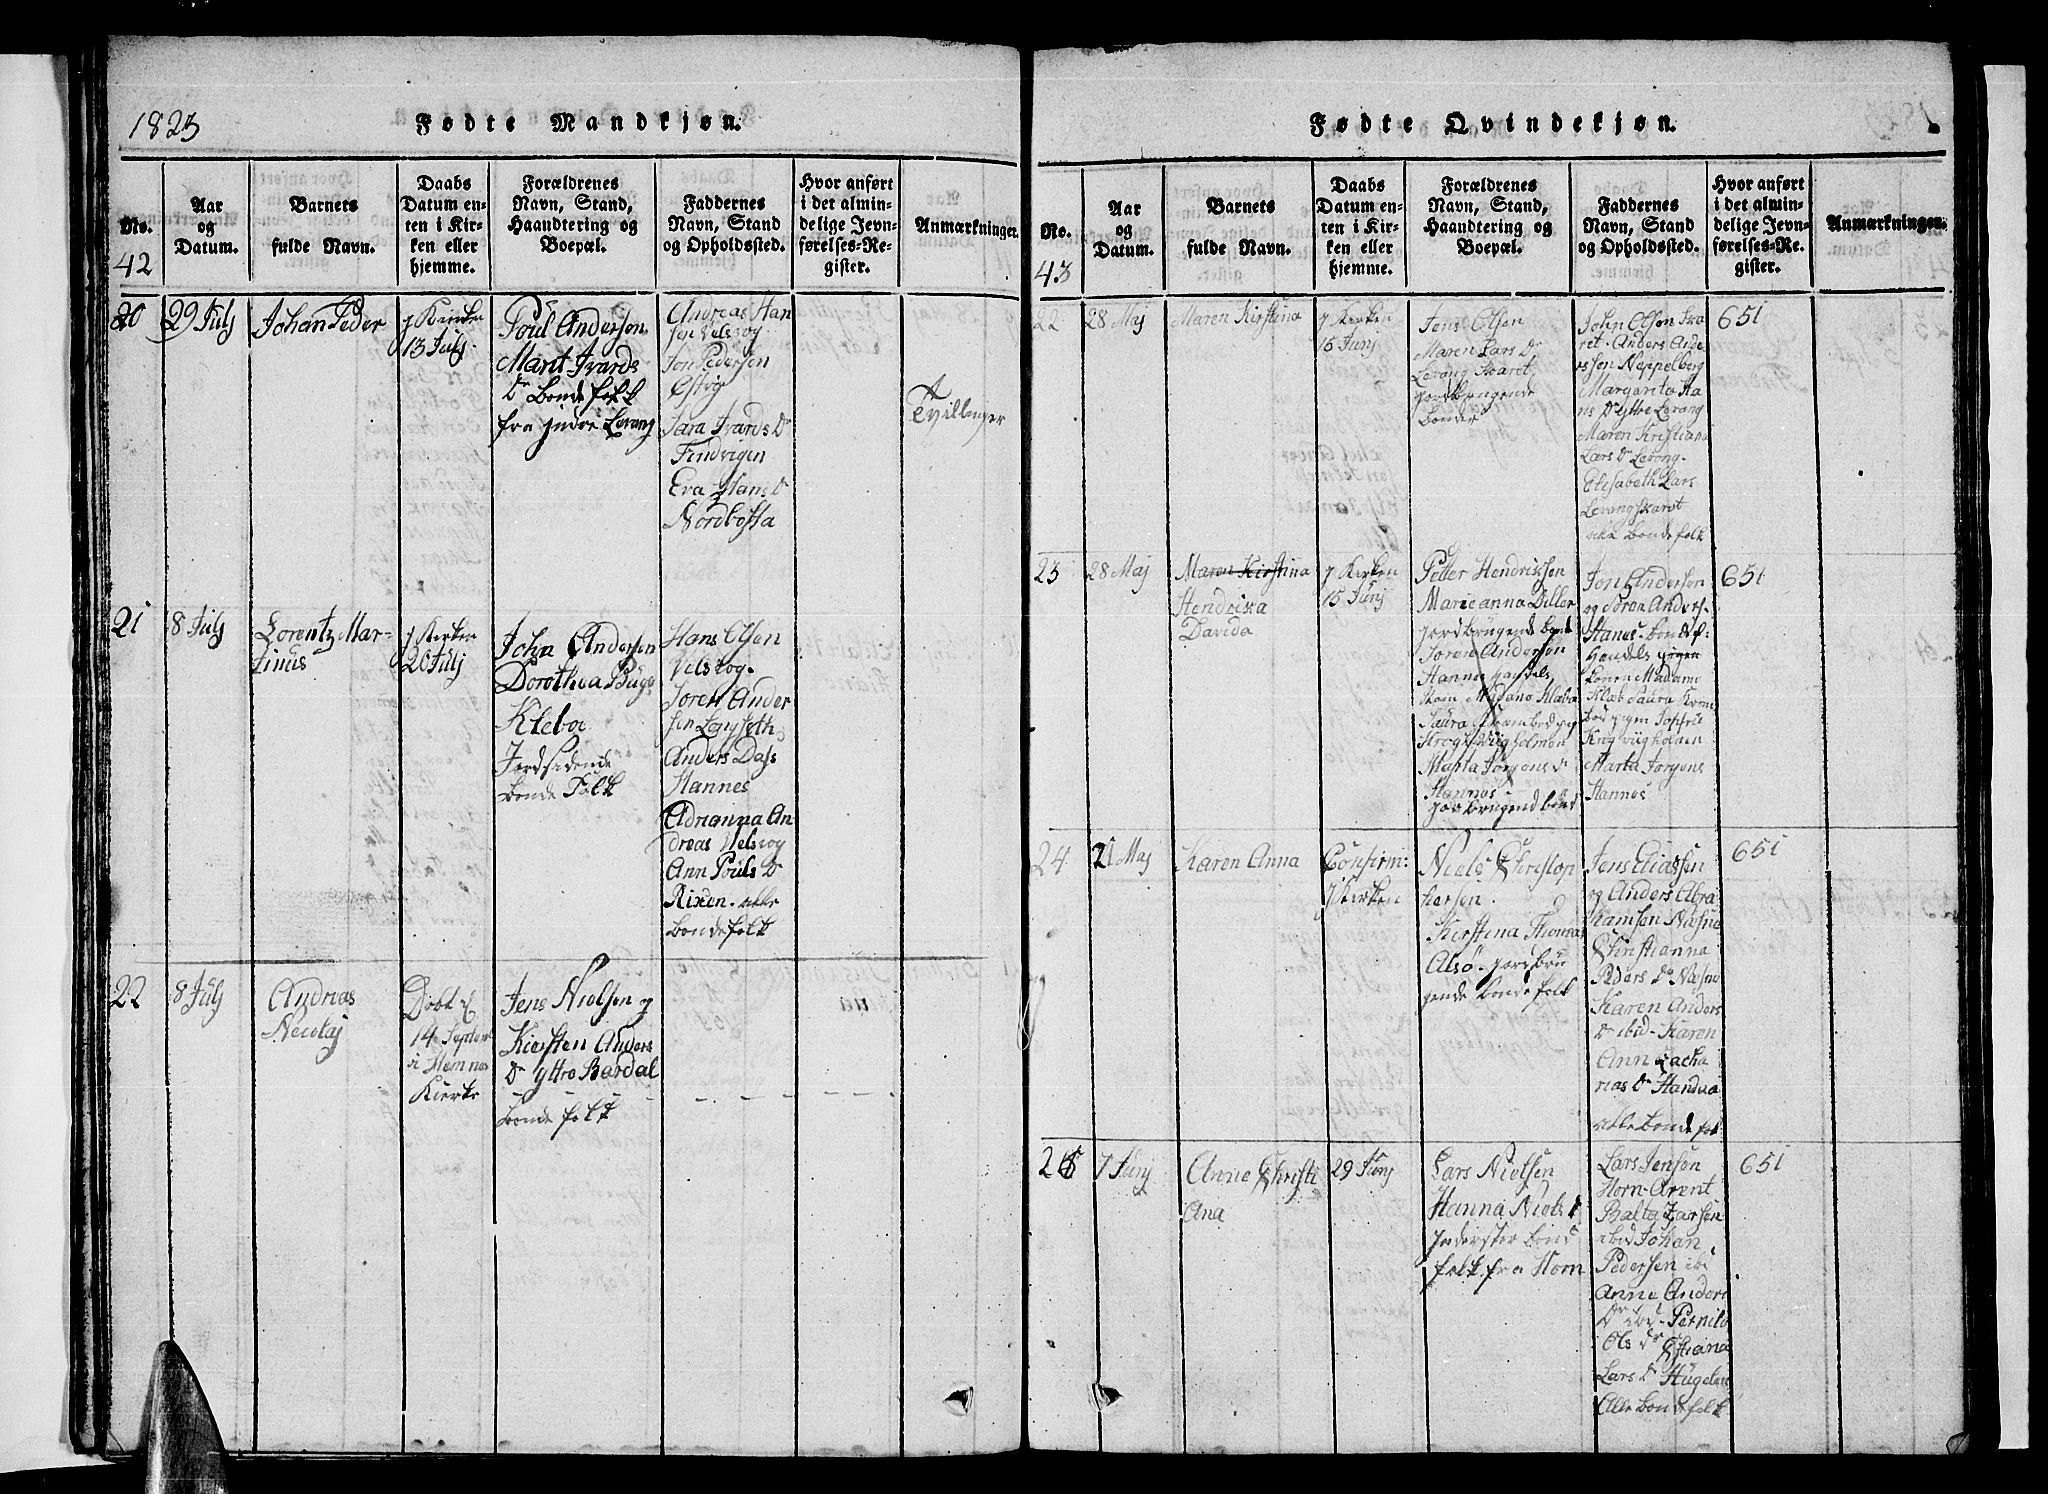 1823
Fødte Mandkjøn.
No.
42
Aar
og
Datum.
Barnets
fulde Navn.
Daabs
Datum en-
ten i Kir-
ken eller
hjemme.
Forældrenes
Navn, Stand,
Haandtering og
Boepæl.
Faddernes
Navn, Stand
og Opholdssted.
Hvor anført
i det almin-
delige Jevn-
førelses-Re-
gister.
Anmærkninger.
20
29 Julj
Johan Peder
j Kirken
13 Julj.
Poul Andersen
Marit Ivards
Dr Bonde folk
fra jndre Levang
Andreas Han
sen Velsvog.
Jon Pedersen
Østvig
Sara Ivards Dr
Findvigen
Eva Hans Dr
Nordbosta
Tvillinger
21
8 Julj
Lorentz Mar-
tinus
j Kirken
20 Julj
John Andersen
Dorothea
Kleboe
Jordsidende
bonde Folk
Hans Olsen
Velsvog.
Soren Ander
sen Langseth
Anders Dass
Hannes
Adrianna An
dreas Velsvog
Ann Pouls Dr
Rixen. alle
bondefolk
22
8 Julj
Andreas
Nicolaj
Døbt d
14 Septem
i Hemnes
Kierke
Jens Nielsen og
Kiersten Anders
Dr yttre Bardal
bonde folk
Fødte Qvindekjøn.
No.
43
Aar
og
Datum.
Barnets
fulde Navn.
Daabs
Datum en-
ten i Kir-
ken eller
hjemme.
Forældrenes
Navn, Stand,
Haandtering og
Boepæl.
Faddernes
Navn, Stand
og Opholdssted.
Hvor anført
i det almin-
delige Jevn-
førelses-Re-
gister.
Anmærkninger.
22
28 Maj
Maren Kirstina
j Kirken
15 Junj
Jens Olsen
Maren Lars Dr
Levang Skaret
jordbrugende
bonder
John Olsen Ska
ret. Anders Ande
rssen Neppelberg
Margareta Ha
ns Dr yttre Levang
Maren Kristiana
Lars Dr Levang.
Elisabeth Lars
Levangskaret
alle bondefolk
651
23
28 Maj
Maren Kirstina
Hendrika
Davida
j Kirken
15 Junj
Petter Hendriksen
Marieanna Diller
jordbrugende bond
Soren Andersen
Hannes handels
Marta Jorgens Dr
Hannes
jordbrugend bønd
Jon Andersen
og Soren Anders.
Hanes. bondef:
Handels
konen Madam
Marta Jorgens
Hannes
651
24
21 Maj
Karen Anna
Confirm:
j Kirken
Niels Christop
hersen.
Kirstina Thomas
Alsø. jordbru
gende bonde folk
Jens Eliassen
og Anders Abra
hamsen Næsna
Christianna
Peders Dr Næsna
Karen Anders
Dr ibid. Karen
Ann Zacha
rias Dr Handna
alle bonde folk
651
25
7 Junj
Anne Christi
Ana
29 Junj
Lars Nielsen
Hanna Niels D
jnderster bond
folk fra Horn
Lars Jensen
Horn. Arent
Baltazarsen
ibid Johan
Pedersen ibi
Anne Anders
Dr ibd. Pernila
Ols Dr
Lars Dr Hugelen
Alle bondefolk
651